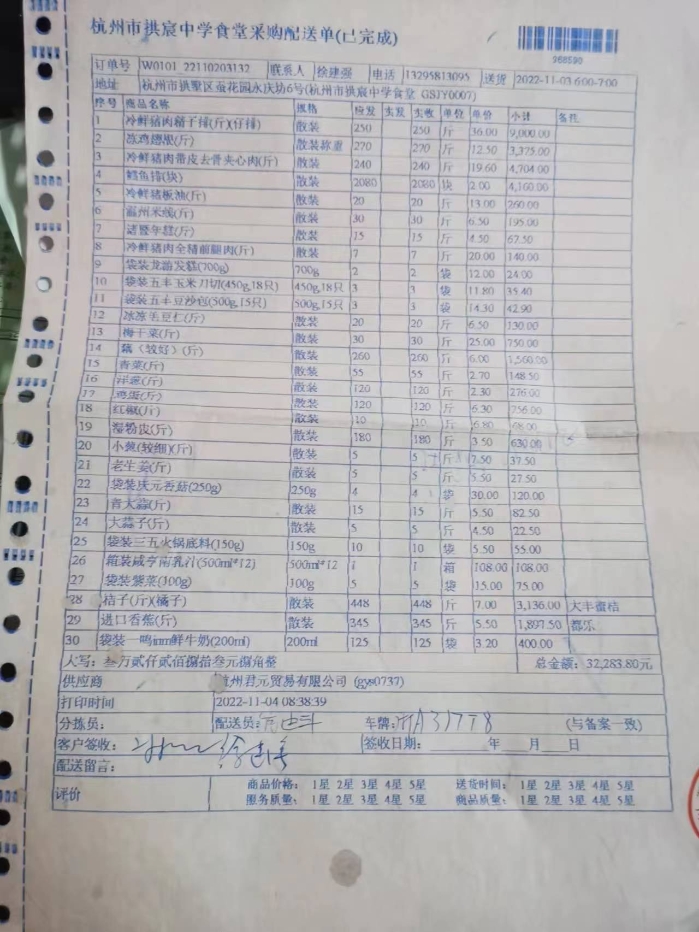 杭州市拱宸中学食堂采购配送单(已完成)
968590
订单号 W0101_22110203132 联系人 徐建强 电话 13295813095 送货 2022-11-03 6:00-7:00
地址 杭州市拱墅区蚕花园永庆坊6号(杭州市拱宸中学食堂 GSJY0007)
序号 商品名称 规格 应发 实发 实收 单位 单价 小计 备注
1 冷鲜猪肉精子排(斤)(仔排) 散装 250 250 斤 36.00 9,000.00
2 冻鸡翅根(斤) 散装称重 270 270 斤 12.50 3,375.00
3 冷鲜猪肉带皮去骨夹心肉(斤) 散装 240 240 斤 19.60 4,704.00
4 鳕鱼排(块) 散装 2080 2080 块 2.00 4,160.00
5 冷鲜猪板油(斤) 散装 20 20 斤 13.00 260.00
6 温州米线(斤) 散装 30 30 斤 6.50 195.00
7 诸暨年糕(斤) 散装 15 15 斤 4.50 67.50
8 冷鲜猪肉全精前腿肉(斤) 散装 7 7 斤 20.00 140.00
9 袋装龙游发糕(700g) 700g 2 2 袋 12.00 24.00
10 袋装五丰玉米刀切(450g,18只) 450g,18只 3 3 袋 11.80 35.40
11 袋装五丰豆沙包(500g,15只) 500g,15只 3 3 袋 14.30 42.90
12 冰冻毛豆仁(斤) 散装 20 20 斤 6.50 130.00
13 梅干菜(斤) 散装 30 30 斤 25.00 750.00
14 藕(较好)(斤) 散装 260 260 斤 6.00 1,560.00
15 青菜(斤) 散装 55 55 斤 2.70 148.50
16 洋葱(斤) 散装 120 120 斤 2.30 276.00
17 鸡蛋(斤) 散装 120 120 斤 6.30 756.00
18 红椒(斤) 散装 10 10 斤 6.80 68.00
19 湿粉皮(斤) 散装 180 180 斤 3.50 630.00
20 小葱(较细)(斤) 散装 5 5 斤 7.50 37.50
21 老生姜(斤) 散装 5 5 斤 5.50 27.50
22 袋装庆元香菇(250g) 250g 4 4 袋 30.00 120.00
23 青大蒜(斤) 散装 15 15 斤 5.50 82.50
24 大蒜子(斤) 散装 5 5 斤 4.50 22.50
25 袋装三五火锅底料(150g) 150g 10 10 袋 5.50 55.00
26 箱装咸亨南乳汁(500ml*12) 500ml*12 1 1 箱 108.00 108.00
27 袋装紫菜(100g) 100g 5 5 袋 15.00 75.00
28 桔子(斤)(橘子) 散装 448 448 斤 7.00 3,136.00 大丰蜜桔
29 进口香蕉(斤) 散装 345 345 斤 5.50 1,897.50 都乐
30 袋装一鸣inm鲜牛奶(200ml) 200ml 125 125 袋 3.20 400.00
大写：叁万贰仟贰佰捌拾叁元捌角整 总金额：32,283.80元
供应商 杭州君元贸易有限公司 (gys0737)
打印时间 2022-11-04 08:38:39
分拣员： 配送员： 车牌： (与备案一致)
客户签收： 徐建强 签收日期： 年 月 日
配送留言：
评价 商品价格： 1星 2星 3星 4星 5星 送货时间： 1星 2星 3星 4星 5星
服务质量： 1星 2星 3星 4星 5星 商品质量： 1星 2星 3星 4星 5星